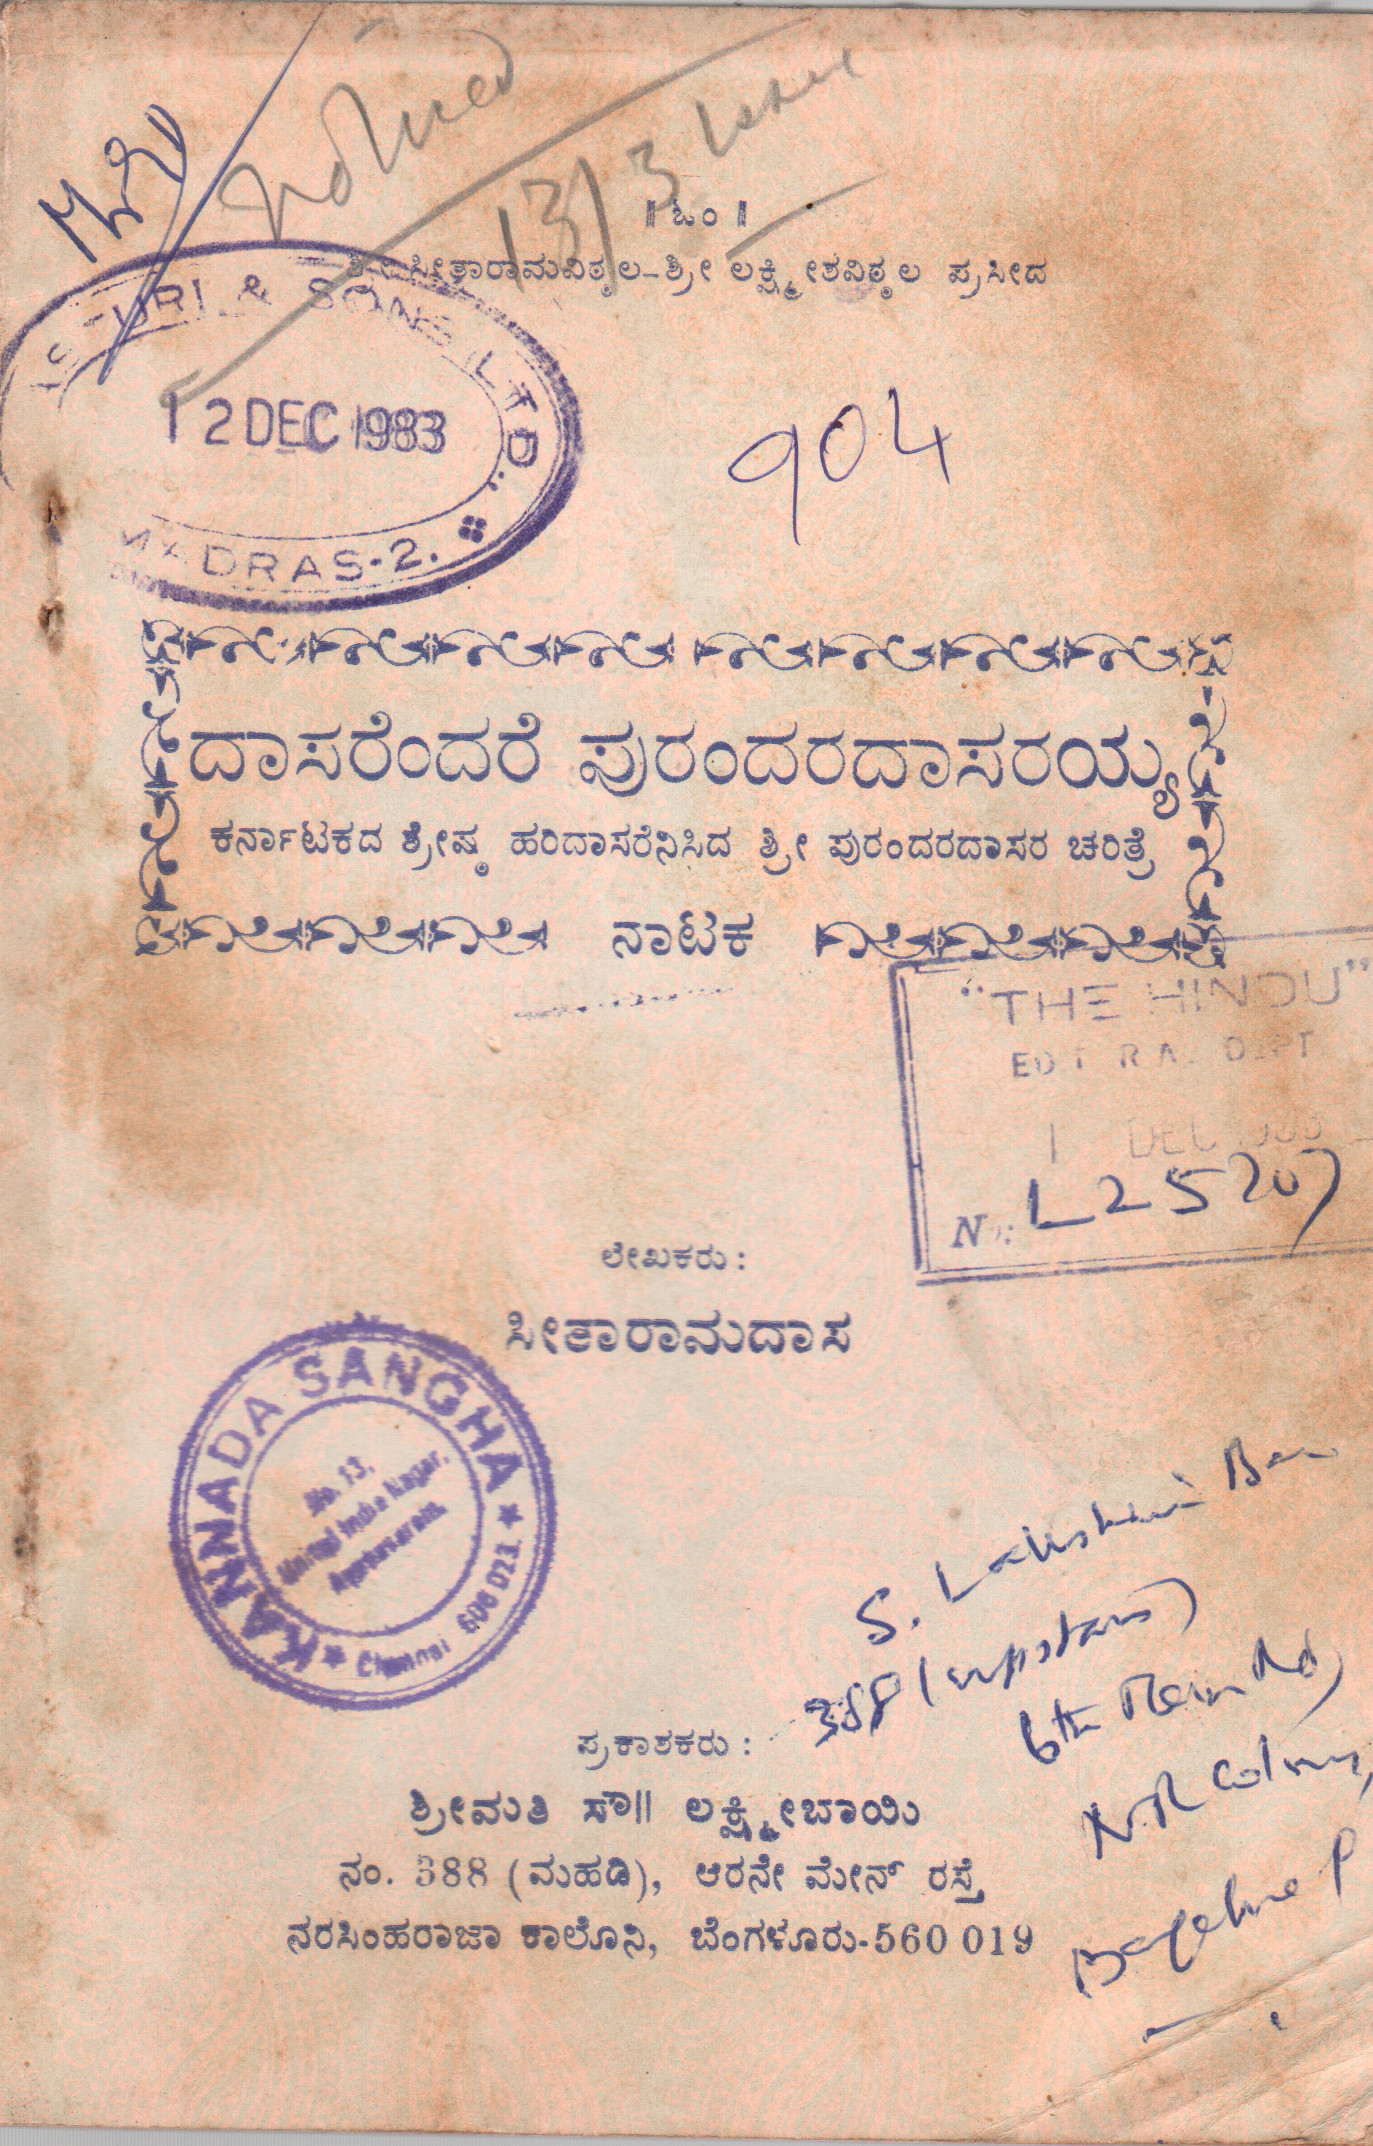 Noticed
13/3 issue
॥ ಓಂ ॥
ಶ್ರೀ ಸೀತಾರಾಮವಿಠ್ಠಲ-ಶ್ರೀ ಲಕ್ಷ್ಮೀಶವಿಠ್ಠಲ ಪ್ರಸೀದ
& SONS LTD.,
12 DEC 1983
MADRAS-2.
904
ದಾಸರೆಂದರೆ ಪುರಂದರದಾಸರಯ್ಯ
ಕರ್ನಾಟಕದ ಶ್ರೇಷ್ಠ ಹರಿದಾಸರೆನಿಸಿದ ಶ್ರೀ ಪುರಂದರದಾಸರ ಚರಿತ್ರೆ
ನಾಟಕ
"THE HINDU"
EDITORIAL DEPT
No: L25207
ಲೇಖಕರು :
ಸೀತಾರಾಮದಾಸ
KANNADA SANGHA
No. 13,
Chennai 600 023.
ಪ್ರಕಾಶಕರು :
ಶ್ರೀಮತಿ ಸೌ॥ ಲಕ್ಷ್ಮೀಬಾಯಿ
ನಂ. 388 (ಮಹಡಿ), ಆರನೇ ಮೇನ್ ರಸ್ತೆ
ನರಸಿಂಹರಾಜಾ ಕಾಲೊನಿ, ಬೆಂಗಳೂರು-560 019
S. Lakshmi Bai
388 (upstairs)
6th Main Rd,
N.R Colony,
Bangalore